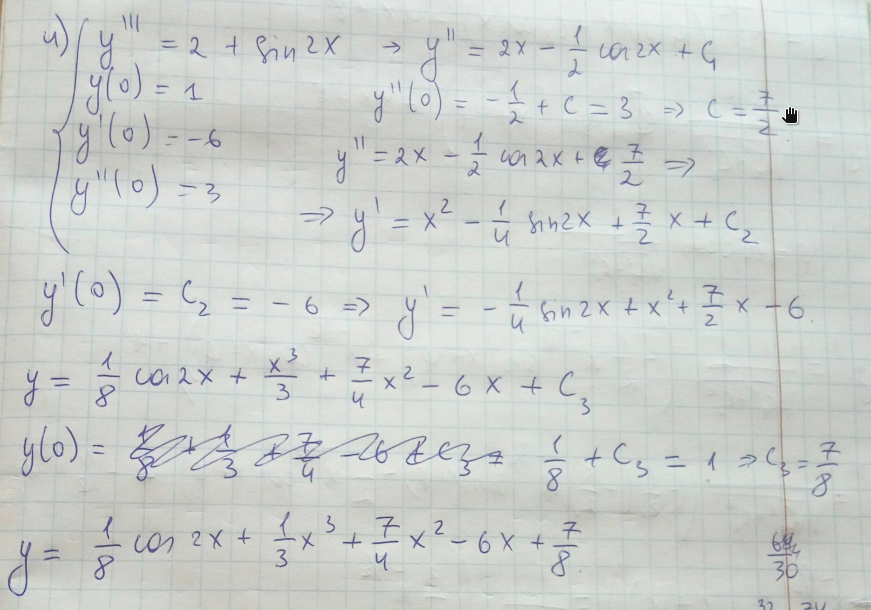 и) y''' = 2 + sin 2x → y'' = 2x - 1/2 cos 2x + C₁
y(0) = 1 y''(0) = -1/2 + C = 3 ⇒ C = 7/2
y'(0) = -6 y'' = 2x - 1/2 cos 2x + 7/2 ⇒
y''(0) = 3
⇒ y' = x² - 1/4 sin 2x + 7/2 x + C₂
y'(0) = C₂ = -6 ⇒ y' = -1/4 sin 2x + x² + 7/2 x - 6
y = 1/8 cos 2x + x³/3 + 7/4 x² - 6x + C₃
y(0) = 1/8 + C₃ = 1 ⇒ C₃ = 7/8
y = 1/8 cos 2x + 1/3 x³ + 7/4 x² - 6x + 7/8